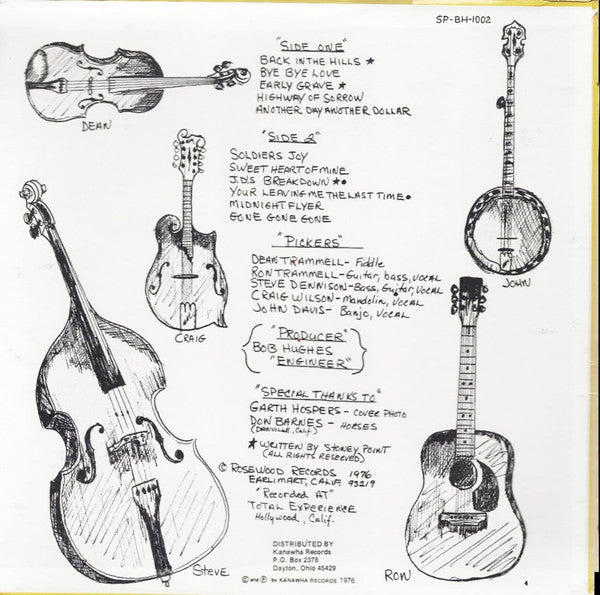 SP-BH-1002
"SIDE ONE"
BACK IN THE HILLS ★
BYE BYE LOVE
EARLY GRAVE ★
HIGHWAY OF SORROW
ANOTHER DAY ANOTHER DOLLAR
DEAN
"SIDE 2"
SOLDIERS JOY
SWEET HEART OF MINE
J.D.S BREAKDOWN ★•
YOUR LEAVING ME THE LAST TIME •
MIDNIGHT FLYER
GONE GONE GONE
"PICKERS"
DEAN TRAMMELL - Fiddle
RON TRAMMELL - Guitar, bass, VOCAL
STEVE DENNISON - Bass, Guitar, VOCAL
CRAIG WILSON - Mandolin, VOCAL
JOHN DAVIS - Banjo, VOCAL
JOHN
CRAIG
"PRODUCER"
BOB HUGHES
"ENGINEER"
"SPECIAL THANKS TO"
GARTH HOSPERS - COVER PHOTO
DON BARNES - HORSES
(DANVILLE, Calif.)
★ WRITTEN BY STONEY POINT
(ALL RIGHTS RESERVED)
© ROSEWOOD RECORDS 1976
EARLIMART, CALIF. 93219
"Recorded AT"
TOTAL EXPERIENCE
Hollywood, Calif.
DISTRIBUTED BY
Kanawha Records
P.O. Box 2378
Dayton, Ohio 45429
© and ℗ by KANAWHA RECORDS 1976
Steve
RON
4